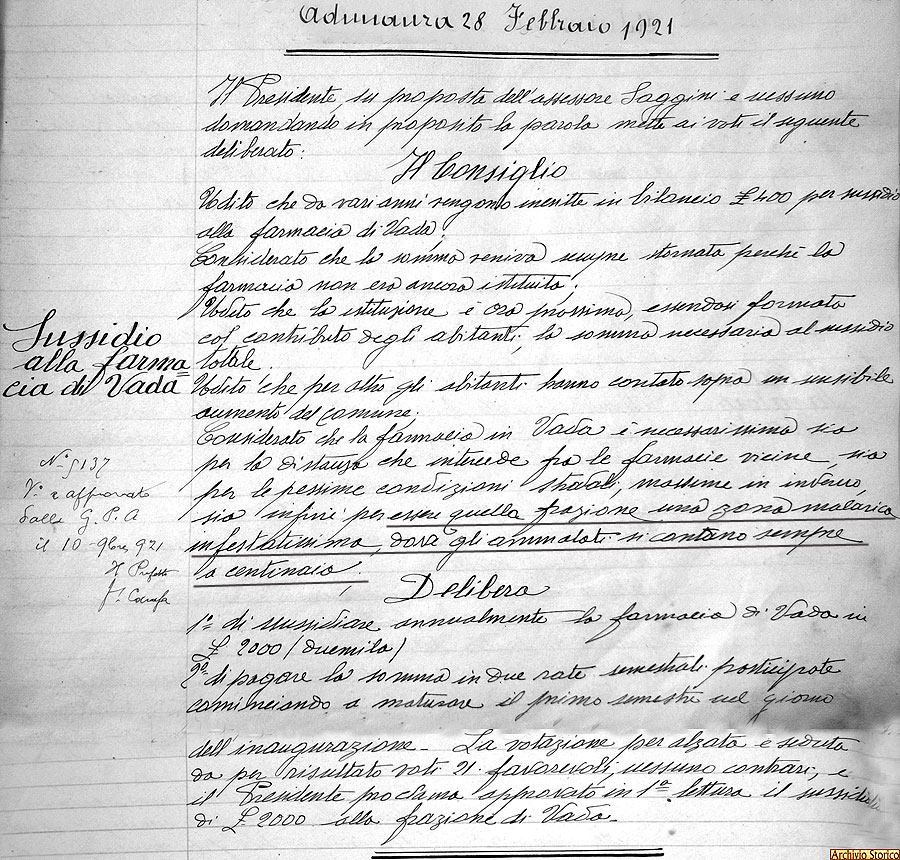 Adunanza 28 Febbraio 1921
Il Presidente, su proposta dell'assessore Saggini e nessuno
domandando in proposito la parola mette ai voti il seguente
deliberato:
Il Consiglio
Udito che da vari anni vengono iscritte in bilancio £ 400 per sussidio
alla farmacia di Vada,
Considerato che la somma veniva sempre stornata perchè la
farmacia non era ancora istituita;
Udito che la istituzione è ora prossima, essendosi formata
col contributo degli abitanti, la somma necessaria al sussidio
totale.
Udito che per altro gli abitanti hanno contato sopra un sensibile
aumento del comune;
Considerato che la farmacia in Vada è necessarissima sia
per la distanza che intercede fra le farmacie vicine, sia
per le pessime condizioni stradali, massime in inverno,
sia infine per essere quella frazione una zona malarica
infestatissima, dove gli ammalati si contano sempre
a centinaia.
Delibera
1º di sussidiare annualmente la farmacia di Vada in
£ 2000 (duemila)
2º di pagare la somma in due rate semestrali posticipate
cominciando a maturare il primo semestre nel giorno
dell'inaugurazione - La votazione per alzata e seduta
dà per risultato voti 21 favorevoli, nessuno contrari, e
il Presidente proclama approvato in 1ª lettura il sussidio
di £ 2000 alla frazione di Vada.
Sussidio
alla farma=
cia di Vada
Nº 5137
Vº e approvato
dalla G. P. A
il 10-9bre 921
Il Prefetto
fº
Archivio Storico